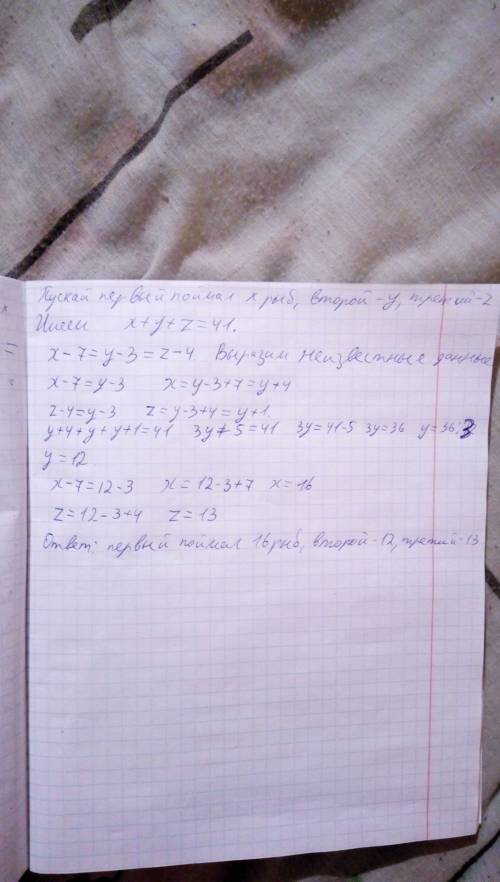 Пускай первый поймал x рыб, второй - y, третий - z
Имеем x+y+z=41.
x-7=y-3=z-4. Выразим неизвестные данные
x-7=y-3 x=y-3+7=y+4
z-4=y-3 z=y-3+4=y+1
y+4+y+y+1=41 3y+5=41 3y=41-5 3y=36 y=36:3
y=12.
x-7=12-3 x=12-3+7 x=16
z=12-3+4 z=13
Ответ: первый поймал 16 рыб, второй - 12, третий - 13